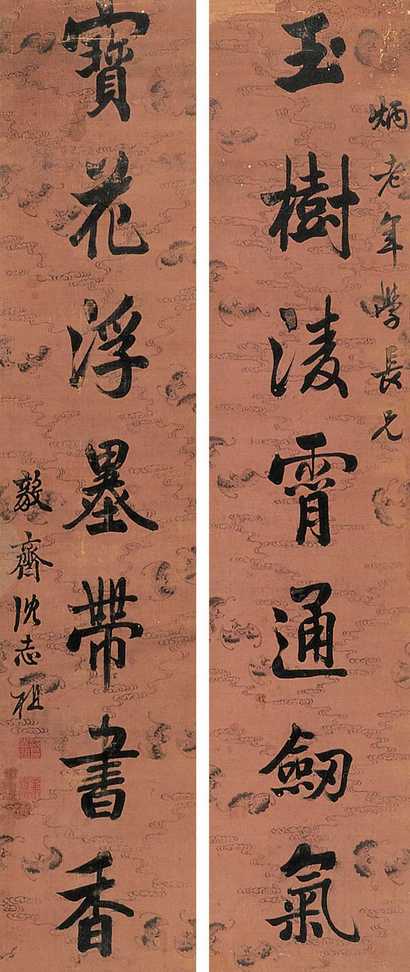 炳老年學長兄
玉樹淩霄通劒氣
寶花浮墨帶書香
敬齋沈志祖